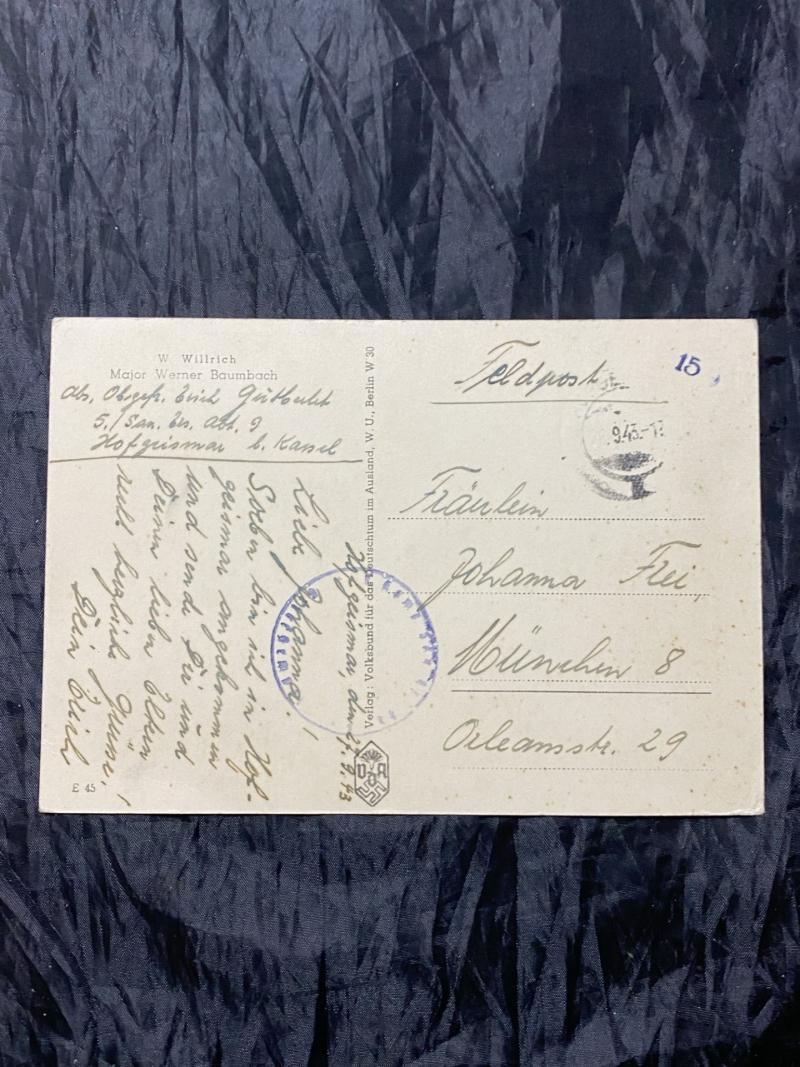 W. Willrich
Major Werner Baumbach
Abs. Obgefr. Erich Gutberlet
5./San. Ers. Abt. 9
Hofgeismar b. Kassel
Hofgeismar, den 27.9.43
Liebe Johanna!
Soeben bin ich in Hof-
geismar angekommen
und sende Dir und
Deinen lieben Eltern
recht herzliche Grüsse!
Dein Erich
E 45
Verlag: Volksbund für das Deutschtum im Ausland, W. U., Berlin W 30
VDA
Feldpost
15
9.43.-17
Fräulein
Johanna Frei,
München 8
Orleansstr. 29